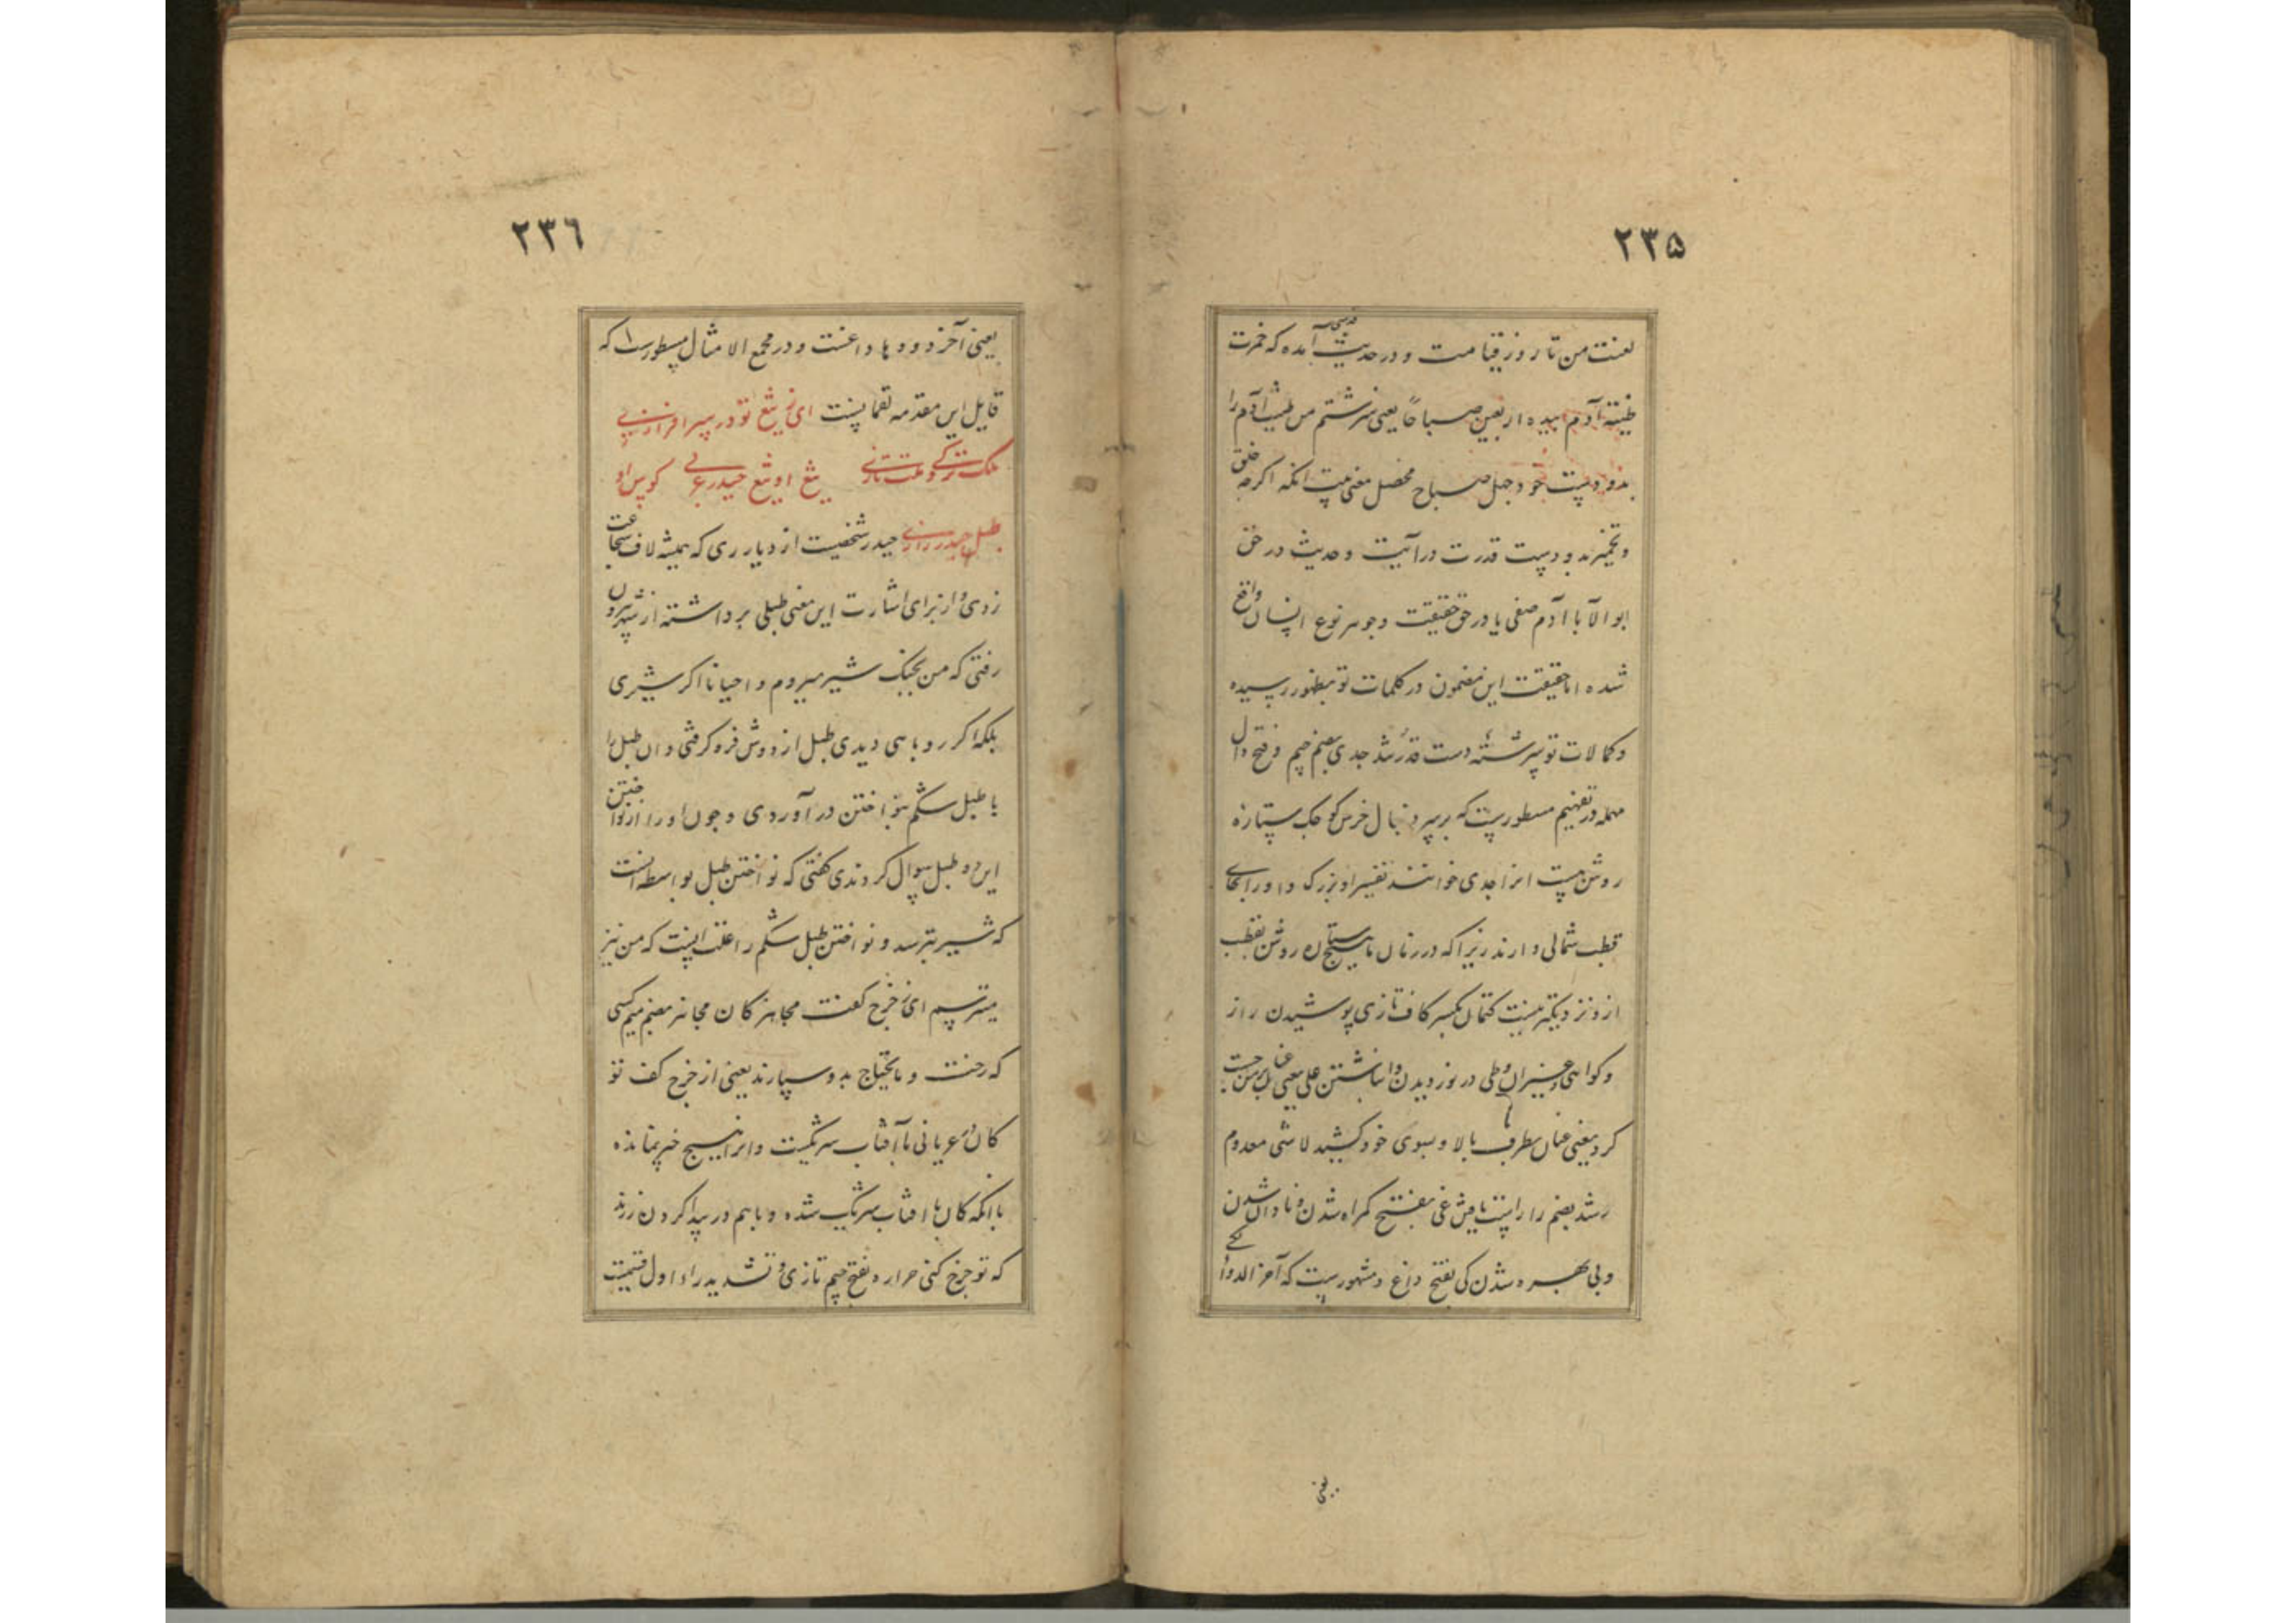 ۲۳۵
لعنت من تا روز قیامت و در حدیث قدسی آمده که خمرت
طینة آدم بیده اربعین صباحًا یعنی سرشتم من طینت آدم را
بدو دست خود چهل صباح محصل معنی بیت انکه اکرچه خلق
و تخمیر بدو دست قدرت در آیت و حدیث در حق
ابو الآبا آدم صفی یا در حق حقیقت و جوهر نوع انسان واقع
شده اما حقیقت این مضمون در کلمات تو بظهور رسیده
و کمالات تو سرشتهٔ دست قدرُ شد جدی بضم جیم و فتح دال
مهمله در تفهیم مسطورست که بر سر دنبال خرس کوچک ستارهٔ
روشن است انرا جدی خوانند تفسیر او بزرک و او را بجای
قطب شمالی دارند زیرا که در زمان ما هیچ ستاره روشن بقطب
ازو نزدیکتر نیست کتمان بکسر کاف تازی پوشیدن راز
و کواهی و جز ان وطی در نوردیدن و انباشتن علی یعنی
کرد یعنی عنان بطرف بالا و بسوی خود کشید لاشی معدوم
رشد بضم را راست یافتن غی بفتح کمراه شدن و نادان شدن
و بی بهره شدن کی بفتح داغ و مشهورست که آخر الدواء الکی
یعنی
۲۳٦
یعنی آخر دودها داغست و در مجمع الامثال مسطورست که
قایل این مقدمه لقمانست ای ز تیغ تو در سر افرازی
ملک ترکی و ملت تازی تیغ او تیغ حیدر عربی کوس او
طبل حیدر رازی حیدر شخصیست از دیار ری که همیشه لاف شجاعت
زدی و از برای اشارت این معنی طبلی برداشته از شهر بیرون
رفتی که من بجنک شیر میروم و احیانا اکر شیری
بلکه اکر روباهی دیدی طبل از دوش فرو کرفتی و ان طبل را
با طبل شکم بنواختن در آوردی و چون او را از نواختن
این دو طبل سوال کردندی کفتی که نواختن طبل بواسطه انست
که شیر بترسد و نواختن طبل شکم را علت اینست که من نیز
میترسم ای ز خرج کفت مجاهز کان مجاهز بضم میم کسی
که رخت و مایحتاج بدو سپارند یعنی از خرج کف تو
کان در عریانی با آفتاب شریکست و او را هیچ خبر نمانده
با انکه کان با افتاب شریک شده و باهم در پیدا کردن زرند
که تو خرج کنی جراره بفتح جیم تازی و تشدید راء اول قسمیست